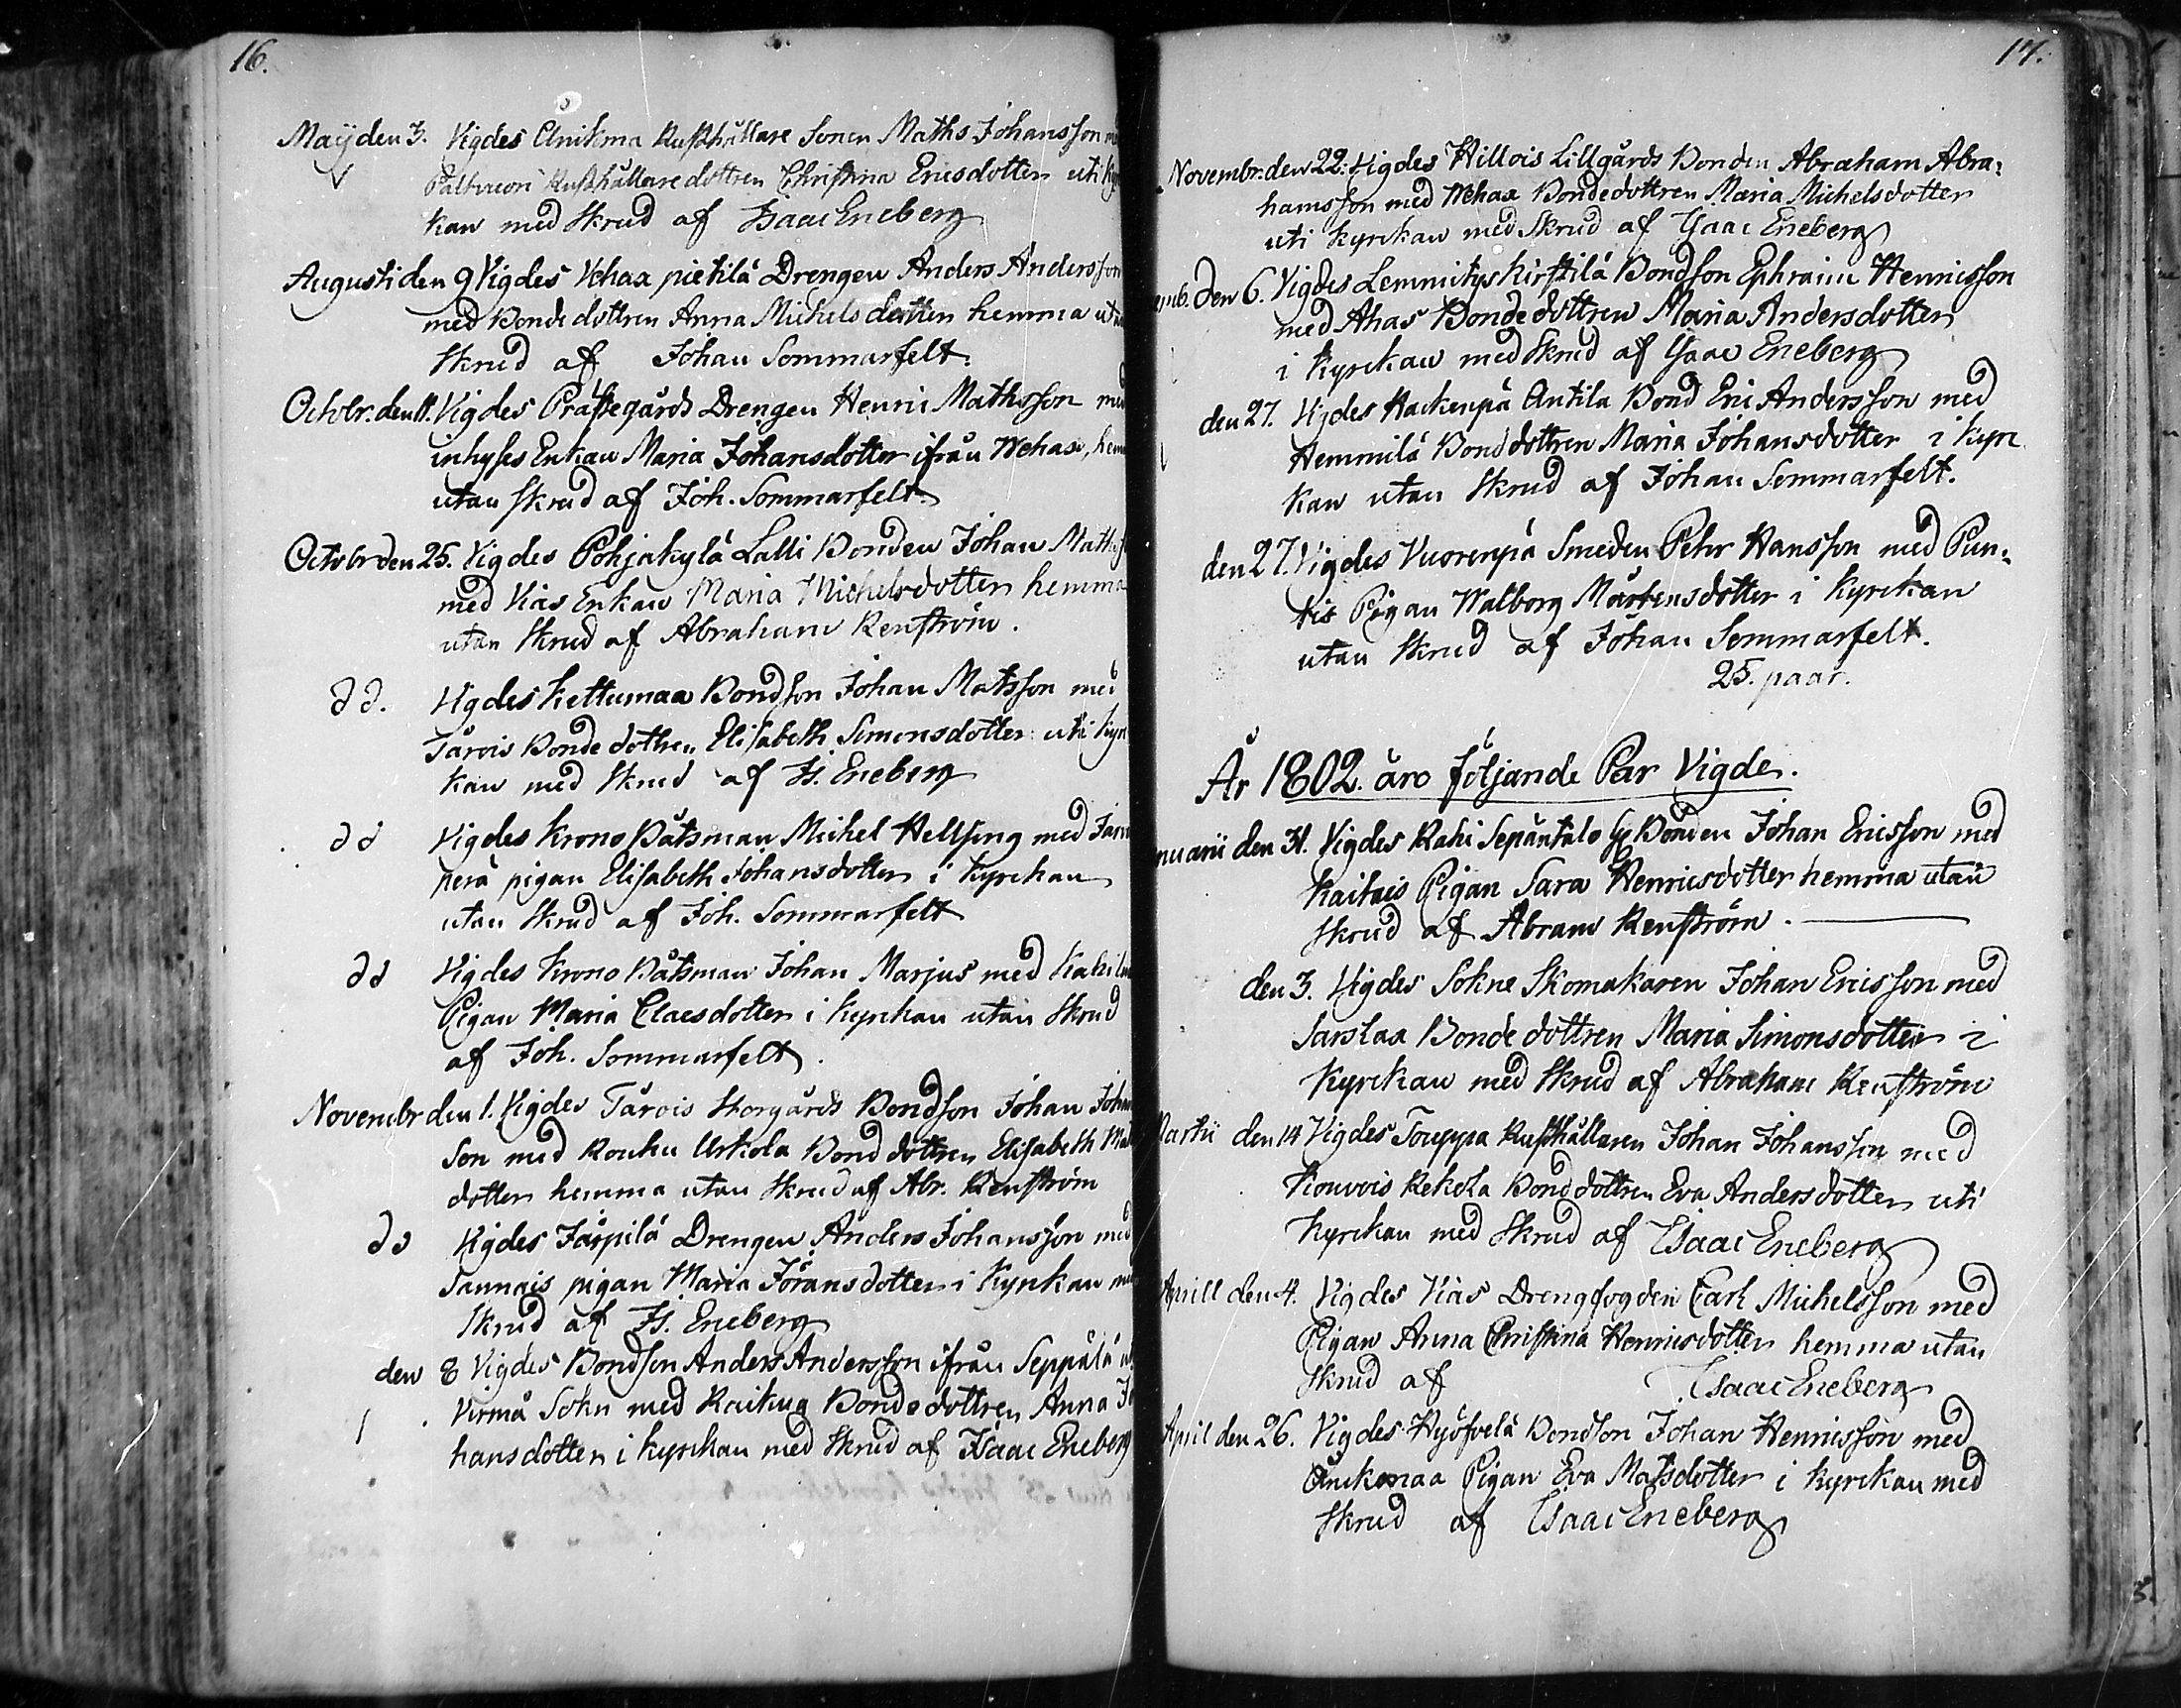 16.
Maÿ den 3. Vigdes Anikma Rusthållare Sonen Maths Johansson
Rusthållare dottren Christina Ericsdotter uti
kan med Skrud af Isaac Eneberg
Augusti den 9 Vigdes Vehaa pietilä Drengen Anders Andersson
med Bonde dottren Anna Michelsdotter hemma
Skrud af Johan Sommarfelt.
Octobr. den 11. Vigdes Prästegårds Drengen Henric Mathsson med
inhyses Enkan Maria Johansdotter ifrån Wehaa,
utan Skrud af Joh. Sommarfelt.
Octobr den 25. Vigdes Pohjakylä Lalli Bonden Johan
med Vias Enkan Maria Michelsdotter hemma
utan Skrud af Abraham Renström.
dd. Vigdes Kettumaa Bondson Johan Matsson med
Järvis Bonde dottren Elisabeth Simonsdotter uti
kan med Skrud af Is. Eneberg
dd Vigdes Krono Båtsman Michel Hellsing med
perä pigan Elisabeth Johansdotter i Kyrckan
utan Skrud af Joh. Sommarfelt
dd Vigdes Krono Båtsman Johan Marjus med
Pigan Maria Claesdotter i Kyrckan utan Skrud
af Joh. Sommarfelt.
Novembr den 1. Vigdes Järvis Storgårds Bondson Johan
son med Rouhu Urkola Bond dottren Elisabeth
dotter hemma utan Skrud af Abr. Renström
dd Vigdes Järpilä Drengen Anders Johansson med
Tannais pigan Maria Jöransdotter i Kyrckan
Skrud af Is. Eneberg
den 8 Vigdes Bondson Anders Andersson ifrån Seppälä
Virmå Sokn med Raikua Bonde dottren Anna
hansdotter i kyrckan med Skrud af Isaac Eneberg
17.
Novembr. den 22. Vigdes Hillois Lillgårds Bonden Abraham Abra-
hamsson med Wehaa Bondedottren Maria Michelsdotter
uti Kyrckan med Skrud af Isaac Eneberg
den 6. Vigdes Lemmitys kirstilä Bondson Ephraim Henricsson
med Ahas Bondedottren Maria Andersdotter
i Kyrckan med Skrud af Isaac Eneberg
den 27. Vigdes Hackenpä Antila Bond Eric Andersson med
Hemmilä Bonddottren Maria Johansdotter i Kyrc
kan utan Skrud af Johan Sommarfelt.
den 27. Vigdes Vuorenpä Smeden Pehr Hansson med Pun-
tis Pigan Walborg Mårtensdotter i Kyrckan
utan Skrud af Johan Sommarfelt.
25. paar.
År 1802. äro följande Par Vigde.
nuarii den 31. Vigdes Rahi Sepäntalo Bonden Johan Ericsson med
Kaitais Pigan Sara Henricsdotter hemma utan
Skrud af Abram Renström.
den 3. Vigdes Sokne Skomakaren Johan Ericsson med
Sarslax Bonde dottren Maria Simonsdotter i
Kyrckan med Skrud af Abraham Renström
Martii den 14 Vigdes Touppa Rusthållaren Johan Johansson med
Kouvois Rekola Bonddottren Eva Andersdotter uti
Kyrckan med Skrud af Isaac Eneberg
Aprill den 4. Vigdes Vias Drengfogden Carl Michelsson med
Pigan Anna Christina Henricsdotter hemma utan
Skrud af Isaac Eneberg
April den 26. Vigdes Hyöfvelä Bondson Johan Henricsson med
Anikmaa Pigan Eva Matsdotter i Kyrckan med
Skrud af Isaac Eneberg